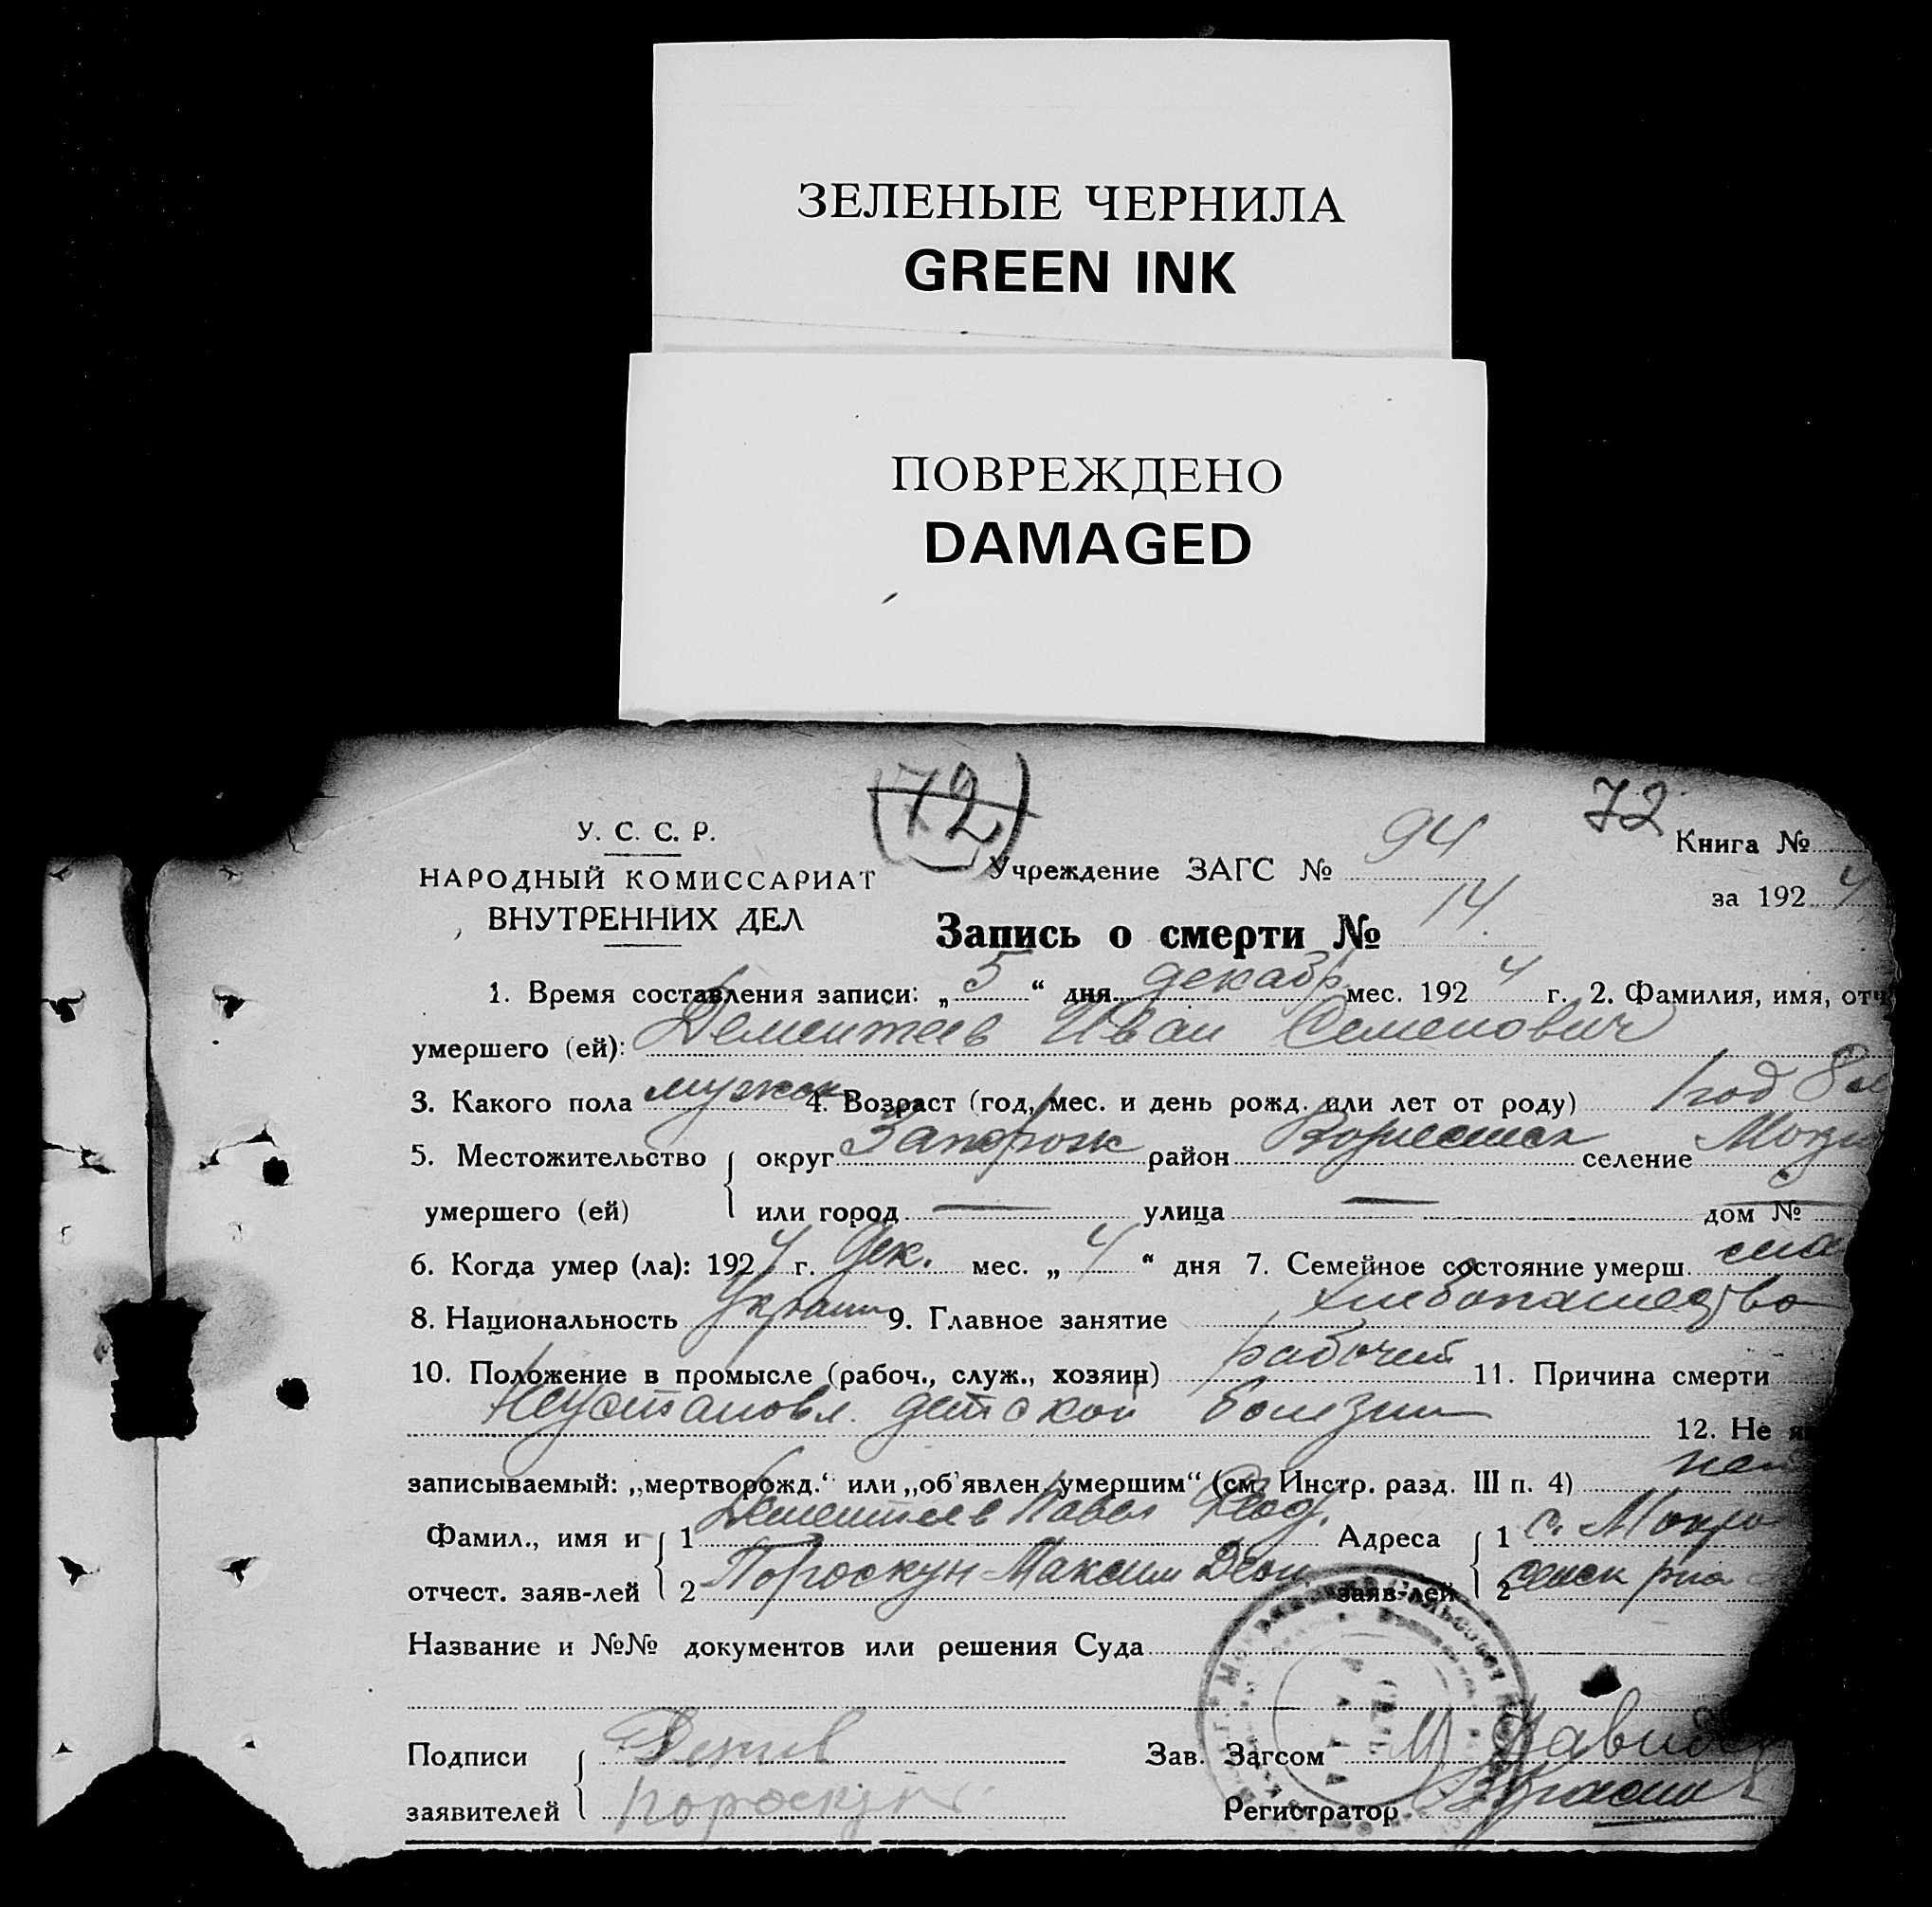 ЗЕЛЕНЫЕ ЧЕРНИЛА
GREEN INK
ПОВРЕЖДЕНО
DAMAGED
(72) 72
У. С. С. Р.
Книга №
НАРОДНЫЙ КОМИССАРИАТ Учреждение ЗАГС № 94
за 1924
ВНУТРЕННИХ ДЕЛ
Запись о смерти № 14
1. Время составления записи: „5“ дня декабр мес. 1924 г. 2. Фамилия, имя, отч
умершего (ей): Дементеев Иван Семенович
3. Какого пола мужск 4. Возраст (год, мес. и день рожд. или лет от роду) 1 год 8 м
5. Местожительство округ Запорож район селение Мокр
умершего (ей) или город — улица — дом № —
6. Когда умер (ла): 1924 г. Дек. мес. „4“ дня 7. Семейное состояние умерш.
8. Национальность Украин 9. Главное занятие хлебопашество
10. Положение в промысле (рабоч., служ., хозяин) рабочий 11. Причина смерти
Неустановл. детской болезни
12. Не я
записываемый: „мертворожд.“ или „об'явлен. умершим“ (см. Инстр. разд. III п. 4) нет
Фамил., имя и 1 Дементеев Павел Феод. Адреса 1 с. Мокро
отчест. заяв-лей 2 Пороскун Максим заяв-лей 2
Название и №№ документов или решения Суда
Подписи Зав. Загсом М
заявителей Пороскун Регистратор